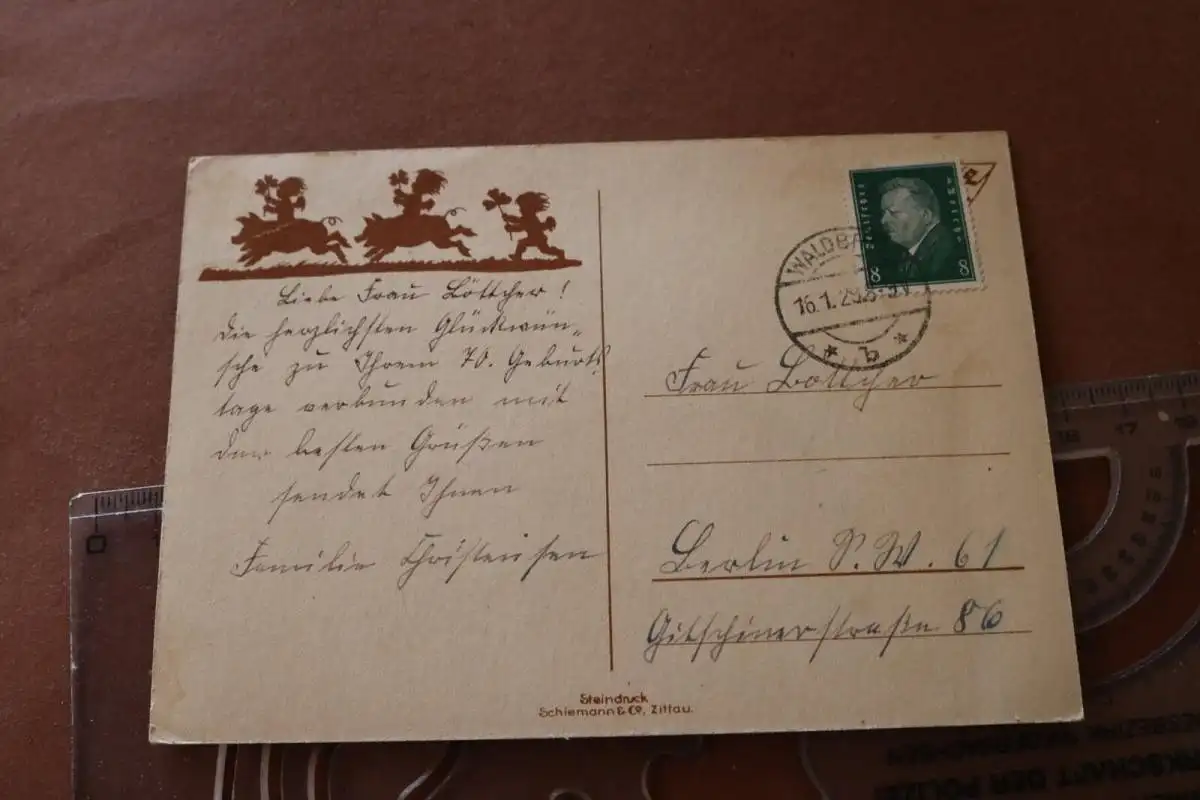 Liebe Frau Böttcher!
die herzlichsten Glückwün„
sche zu Ihrem 70. Geburts
tage verbunden mit
den besten Grüßen
sendet Ihnen
Familie Christensen
8 8
WALDB
16.1.29.8
* b *
Frau Böttcher
Berlin S.W. 61
Gitschinerstraße 86
Steindruck
Schiemann & Co, Zittau.
0
16 17
KSCHAFT DER POLIZEI